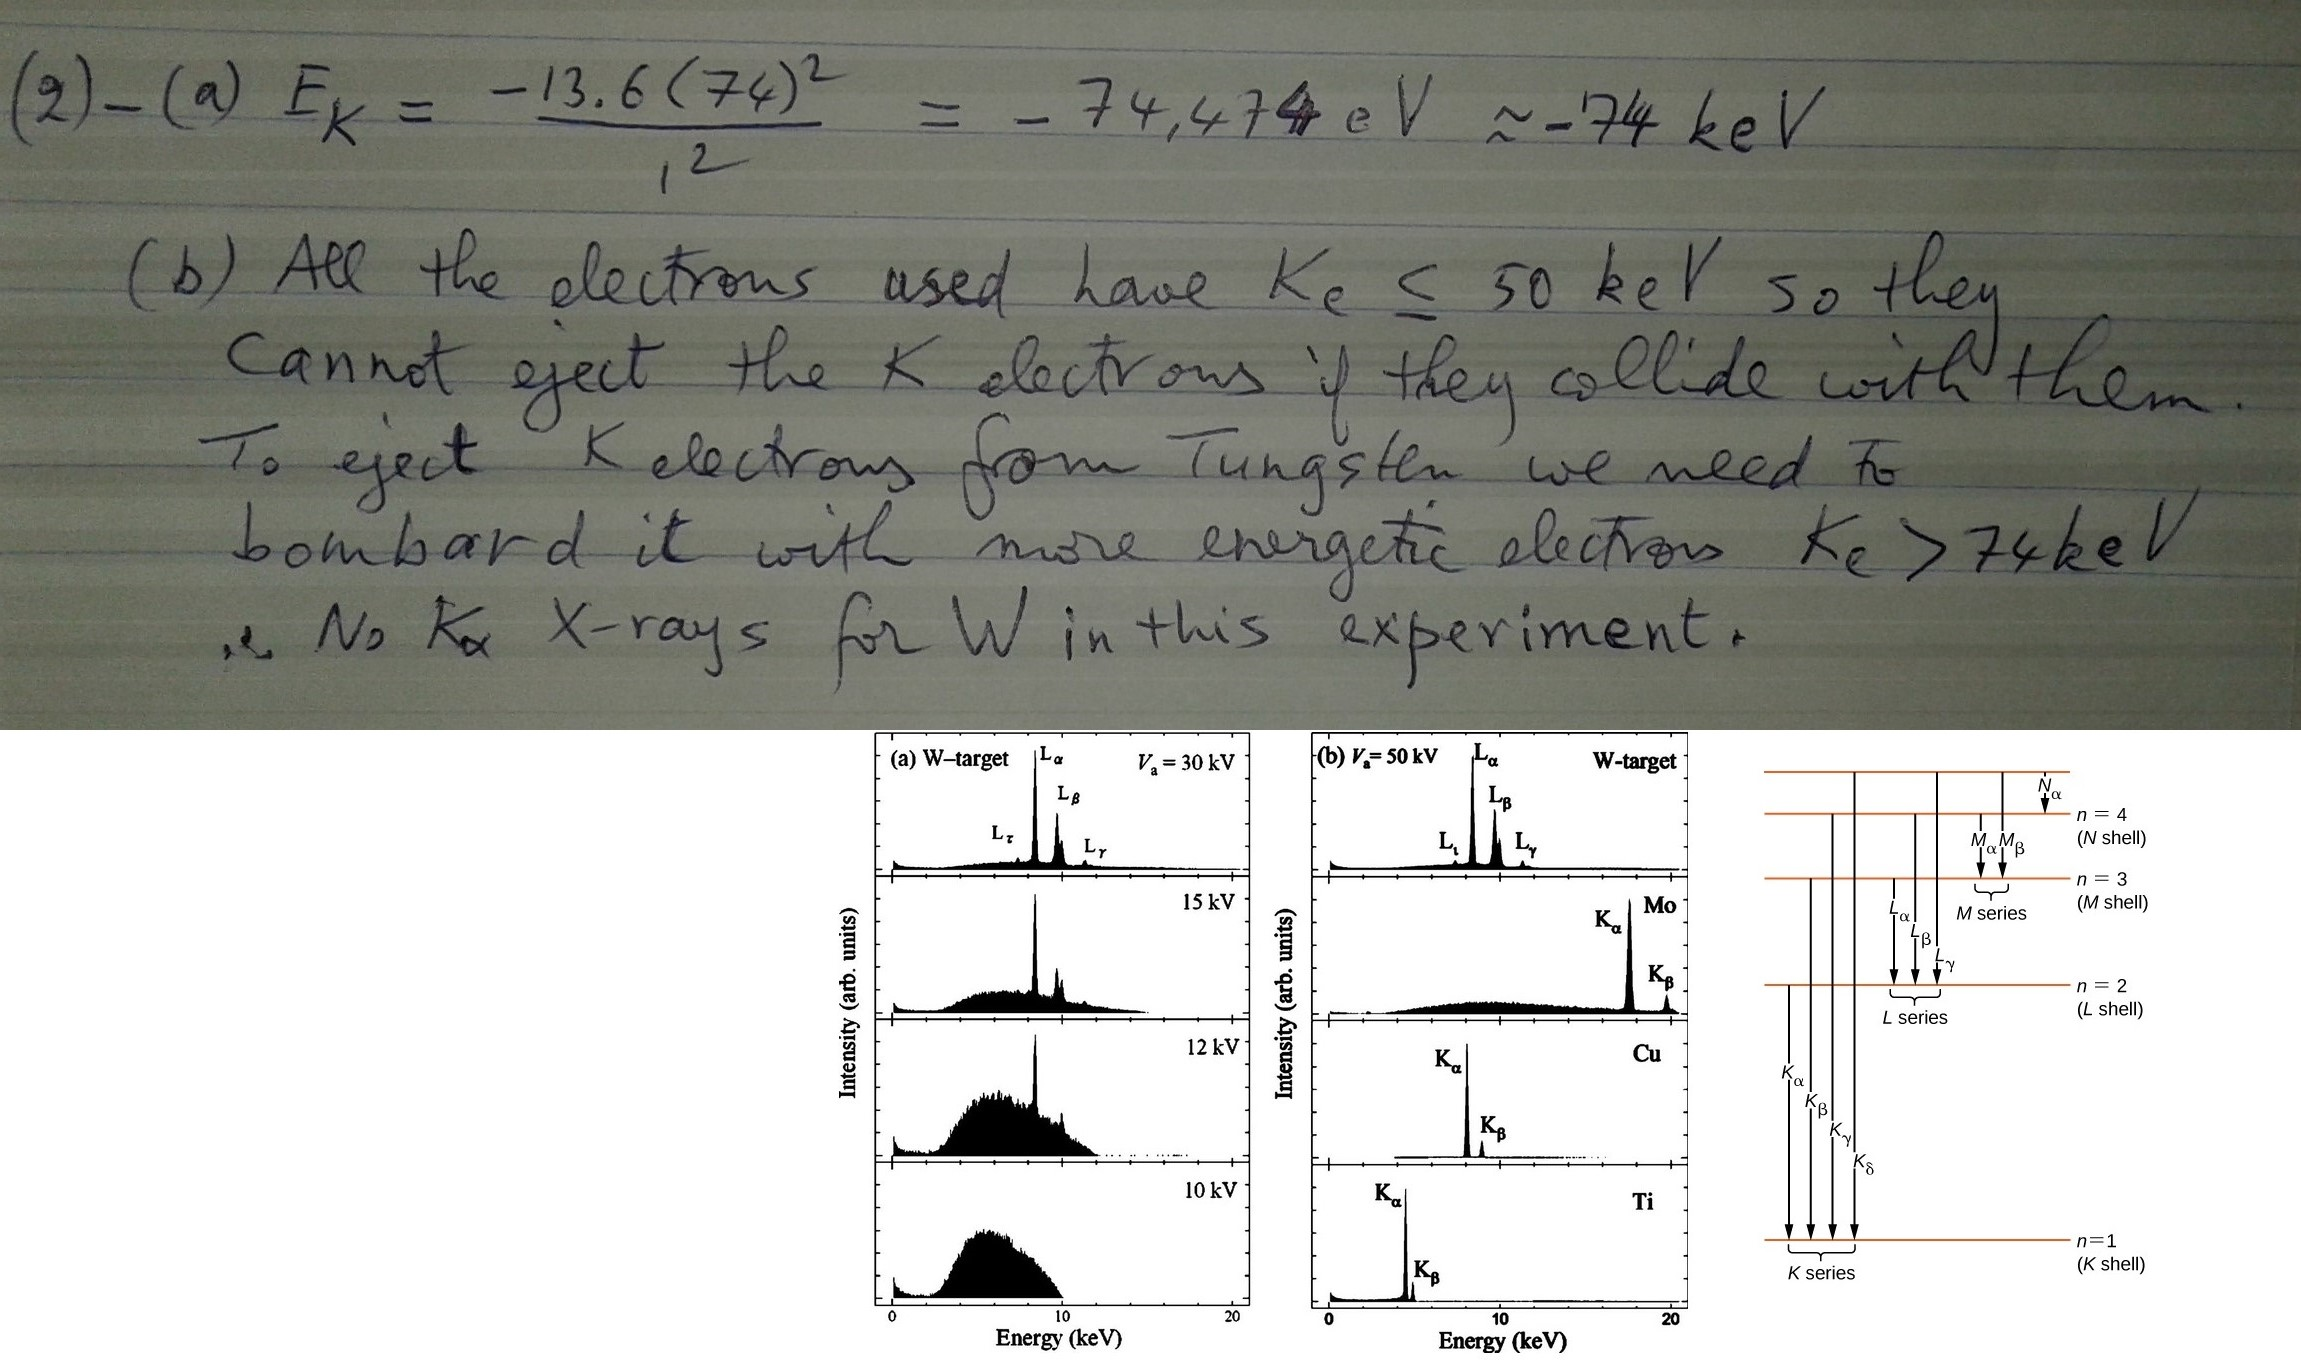 (2)-(a) E_K = -13.6(74)² / 1² = -74,474 eV ≈ -74 keV
(b) All the electrons used have Ke ≤ 50 keV so they
Cannot eject the K electrons if they collide with them.
To eject K electrons from Tungsten we need to
bombard it with more energetic electrons Ke > 74 keV
∴ No Kα X-rays for W in this experiment.
(a) W–target
Vₐ = 30 kV
Lα
Lβ
Lτ
Lγ
15 kV
12 kV
10 kV
Intensity (arb. units)
0 10 20
Energy (keV)
(b) Vₐ= 50 kV
W-target
Lα
Lβ
Lι
Lγ
Mo
Kα
Kβ
Cu
Kα
Kβ
Ti
Kα
Kβ
Intensity (arb. units)
0 10 20
Energy (keV)
Nα
n = 4
(N shell)
Mα Mβ
n = 3
(M shell)
M series
Lα
Lβ
Lγ
n = 2
(L shell)
L series
Kα
Kβ
Kγ
Kδ
n=1
(K shell)
K series